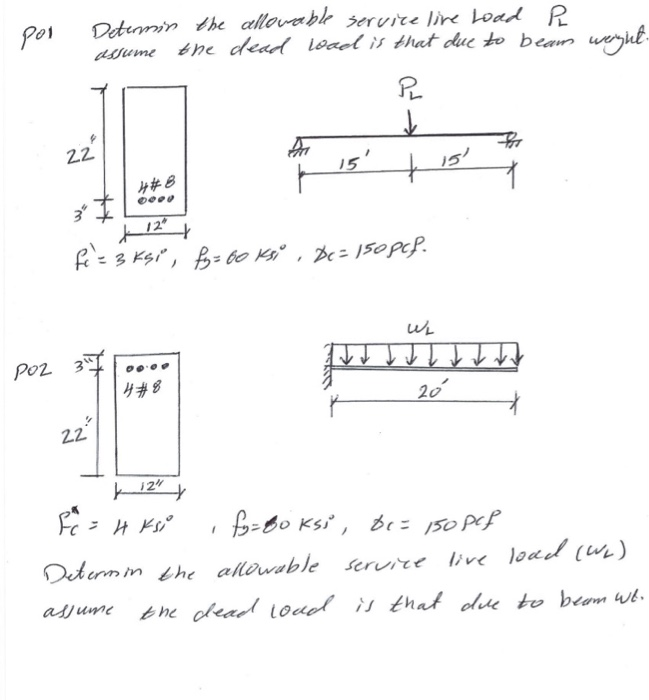 P01 Determin the allowable service live load PL
assume the dead load is that due to beam weight.
PL
22"
4#8
15' 15'
3"
12"
fc' = 3 Ksi, fy = 60 Ksi, γc = 150 pcf.
WL
P02 3"
4#8
20'
22"
12"
fc' = 4 Ksi, fy = 60 Ksi, γc = 150 pcf
Determin the allowable service live load (WL)
assume the dead load is that due to beam wt.